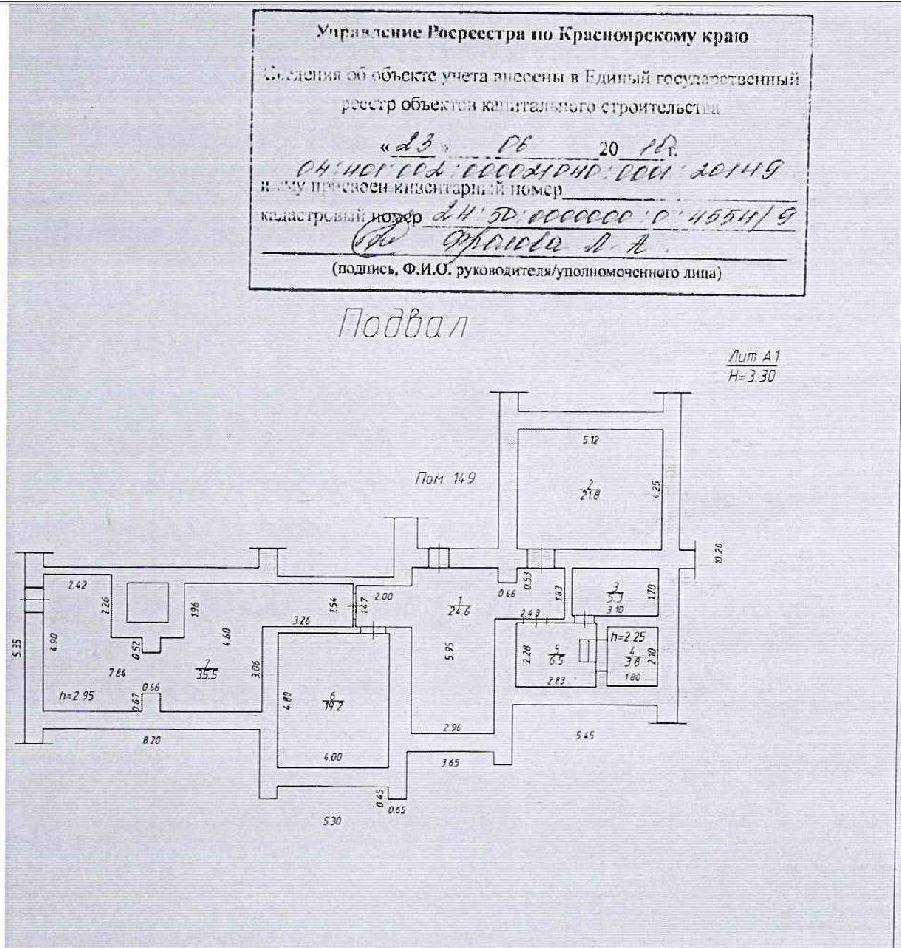 Управление Росреестра по Красноярскому краю
Сведения об объекте учета внесены в Единый государственный
реестр объектов капитального строительства
«23» 06 20 10 г.
04:401:002:000021040:0001:20149
и ему присвоен инвентарный номер
кадастровый номер 24:50:0000000:0:4554/9
Фролова Л. А.
(подпись, Ф.И.О. руководителя/уполномоченного лица)
Подвал
Лит А1
Н=3.30
5.12
Пом. 149
2
21.8
4.25
10.20
2.42
2.26
1.96
1.54
1.47
2.00
1
24.6
0.66
0.53
1.83
3
5.3
1.70
3.10
5.35
4.90
0.52
4.60
3.26
5.95
2.49
h=2.25
7.84
7
35.5
3.06
2.28
5
6.5
4
3.8
2.10
h=2.95
0.67
0.66
4.80
6
19.2
2.83
1.80
8.70
4.00
2.96
3.65
5.45
0.45
0.65
5.30